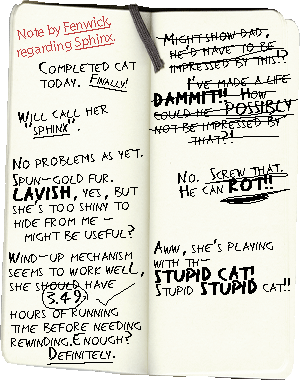 Note by Fenwick,
regarding Sphinx.
Completed cat
today. Finally!
Will call her
"Sphinx".
No problems as yet.
Spun-gold fur.
LAVISH, yes, but
she's too shiny to
hide from me –
might be useful?
Wind-up mechanism
seems to work well,
she should have
(3.49)
hours of running
time before needing
rewinding. Enough?
Definitely.
Might show dad,
he'd have to be
impressed by this!?
I've made a life
DAMMIT!! How
could he POSSIBLY
not be impressed by
that?!
No. Screw that.
He can ROT!!
Aww, she's playing
with th–
STUPID CAT!
Stupid STUPID cat!!